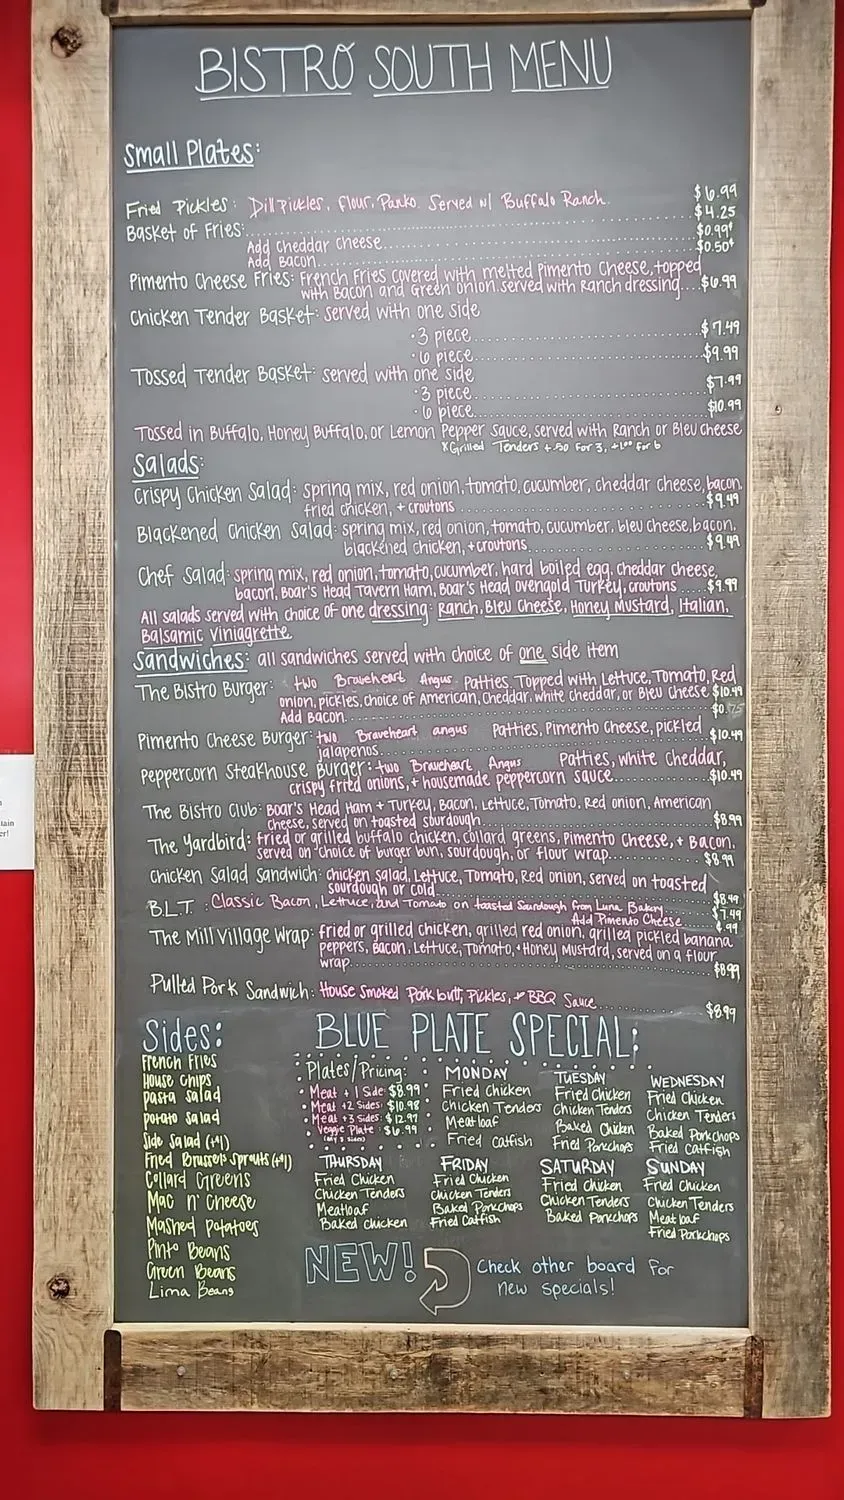 BISTRO SOUTH MENU
Small Plates:
Fried Pickles: Dill Pickles, Flour, Panko. Served w/ Buffalo Ranch. $6.99
Basket of Fries: $4.25
Add Cheddar Cheese $0.99¢
Add Bacon $0.50¢
Pimento Cheese Fries: French Fries covered with melted Pimento Cheese, topped
with Bacon and Green onion served with Ranch dressing $6.99
Chicken Tender Basket: served with one side
• 3 piece $7.49
• 6 piece $9.99
Tossed Tender Basket: served with one side
• 3 piece $7.99
• 6 piece $10.99
Tossed in Buffalo, Honey Buffalo, or Lemon Pepper Sauce, served with Ranch or Bleu Cheese
*Grilled Tenders +.50 for 3, +1.00 for 6
Salads:
Crispy Chicken Salad: spring mix, red onion, tomato, cucumber, cheddar cheese, bacon,
fried chicken, + croutons $9.49
Blackened Chicken Salad: spring mix, red onion, tomato, cucumber, bleu cheese, bacon,
blackened chicken, + croutons $9.49
Chef Salad: spring mix, red onion, tomato, cucumber, hard boiled egg, cheddar cheese,
bacon, Boar's Head Tavern Ham, Boar's Head Ovengold Turkey, croutons $9.99
All salads served with choice of one dressing: Ranch, Bleu Cheese, Honey Mustard, Italian,
Balsamic Viniagrette
Sandwiches: all sandwiches served with choice of one side item
The Bistro Burger: two Braveheart Angus Patties Topped with Lettuce, Tomato, Red
onion, pickles, choice of American, Cheddar, white cheddar, or Bleu Cheese $10.49
Add Bacon $0.75
Pimento Cheese Burger: two Braveheart angus Patties, Pimento Cheese, pickled
jalapenos $10.49
Peppercorn Steakhouse Burger: two Braveheart Angus Patties, white Cheddar,
crispy fried onions, + housemade peppercorn sauce $10.49
The Bistro Club: Boar's Head Ham + Turkey, Bacon, Lettuce, Tomato, Red onion, American
Cheese, served on toasted sourdough $8.99
The Yardbird: fried or grilled buffalo chicken, collard greens, Pimento Cheese, + Bacon,
served on choice of burger bun, sourdough, or flour wrap $8.99
Chicken Salad Sandwich: chicken salad, Lettuce, Tomato, Red onion, served on toasted
sourdough or cold $8.49
B.L.T.: Classic Bacon, Lettuce, and Tomato on toasted Sourdough from Luna Bakery $7.49
Add Pimento Cheese .99
The Mill Village Wrap: fried or grilled chicken, grilled red onion, grilled pickled banana
peppers, Bacon, Lettuce, Tomato, + Honey Mustard, served on a flour
wrap $8.99
Pulled Pork Sandwich: House Smoked Pork butt, Pickles, + BBQ Sauce $8.99
Sides:
French Fries
House Chips
Pasta Salad
Potato Salad
Side Salad (+$1)
Fried Brussels Sprouts (+$1)
Collard Greens
Mac n' Cheese
Mashed Potatoes
Pinto Beans
Green Beans
Lima Beans
BLUE PLATE SPECIAL:
Plates/Pricing:
• Meat + 1 Side: $8.99
• Meat +2 Sides: $10.98
• Meat +3 Sides: $12.97
Veggie Plate: $6.99
(any 3 sides)
MONDAY
Fried Chicken
Chicken Tenders
Meatloaf
Fried Catfish
TUESDAY
Fried Chicken
Chicken Tenders
Baked Chicken
Fried Porkchops
WEDNESDAY
Fried Chicken
Chicken Tenders
Baked Porkchops
Fried Catfish
THURSDAY
Fried Chicken
Chicken Tenders
Meatloaf
Baked Chicken
FRIDAY
Fried Chicken
Chicken Tenders
Baked Porkchops
Fried Catfish
SATURDAY
Fried Chicken
Chicken Tenders
Baked Porkchops
SUNDAY
Fried Chicken
Chicken Tenders
Meatloaf
Fried Porkchops
NEW!
Check other board for
new specials!